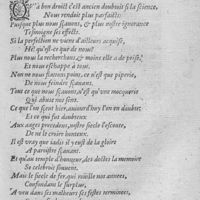 QV'à bon droict c'est ancien doubtoit si la science,
Nous rendoit plus parfaicts:
Puisque plus nous sçauons, & plus nostre ignorance
Tesmoigne ses effects.
Si la perfection ne vient d'ailleurs acquise,
Hé! qu'est-ce que de nous?
Plus nous la recherchons, & moins elle a de prise,
Et nous eschappe à tous.
Non nous ne sçauons point, ce n'est que piperie,
De nous dire sçauant.
Tout ce que nous sçauons, n'est qu'vne mocquerie
Qui abuse nos sens.
Ce que l'on sçeut hier, auiourd'huy l'on en doubte:
Et ce qui fut doubteux
Aux aages precedens, nostre siecle l'escoute,
De ne le croire honteux.
Il est vray que iadis il y eust de la gloire
A paroistre sçauant:
Et qu'au temple d'honneur, des doctes la memoire
Se celebroit souuent.
Mais le siecle de fer, qui rouille nos années,
Confondant le surplus,
A veu dans ses malheurs ses festes terminées,